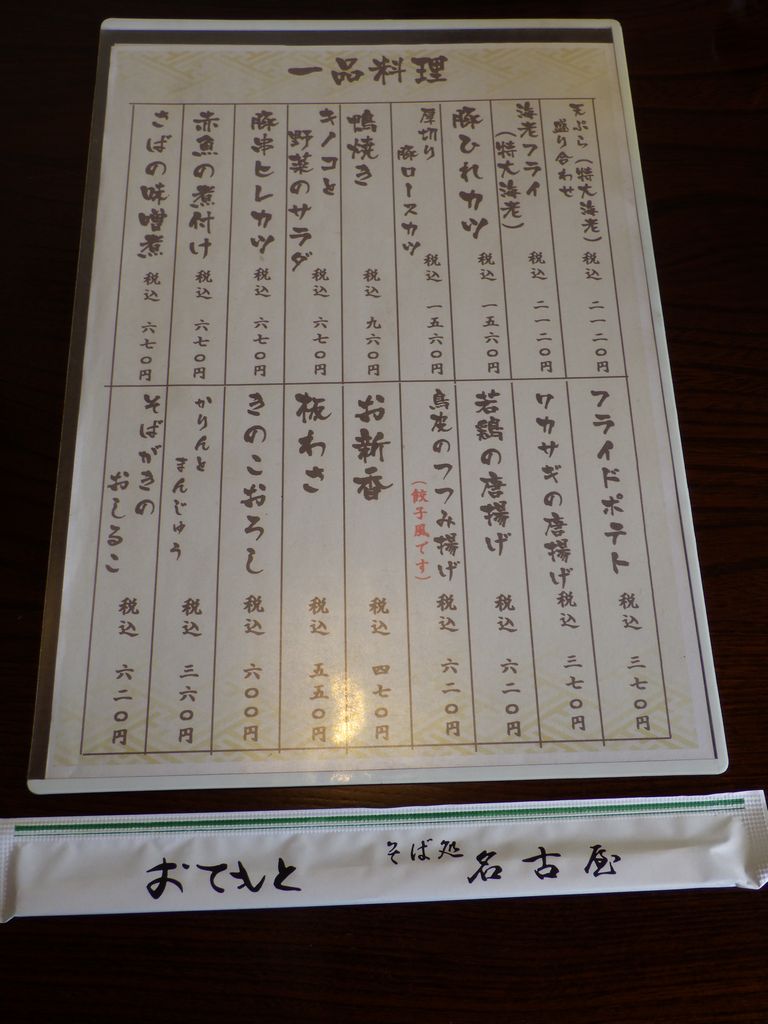 一品料理
天ぷら(特大海老)
盛り合わせ
税込 二一二〇円
海老フライ
(特大海老)
税込 二一二〇円
豚ひれカツ
税込 一五六〇円
厚切り
豚ロースカツ
税込 一五六〇円
鴨焼き
税込 九六〇円
キノコと
野菜のサラダ
税込 六七〇円
豚串ヒレカツ
税込 六七〇円
赤魚の煮付け
税込 六七〇円
さばの味噌煮
税込 六七〇円
フライドポテト
税込 三七〇円
ワカサギの唐揚げ
税込 三七〇円
若鶏の唐揚げ
税込 六二〇円
鳥皮のつつみ揚げ
(餃子風です)
税込 六二〇円
お新香
税込 四七〇円
板わさ
税込 五五〇円
きのこおろし
税込 六〇〇円
かりんと
まんじゅう
税込 三六〇円
そばがきの
おしるこ
税込 六二〇円
おてもと
そば処 名古屋